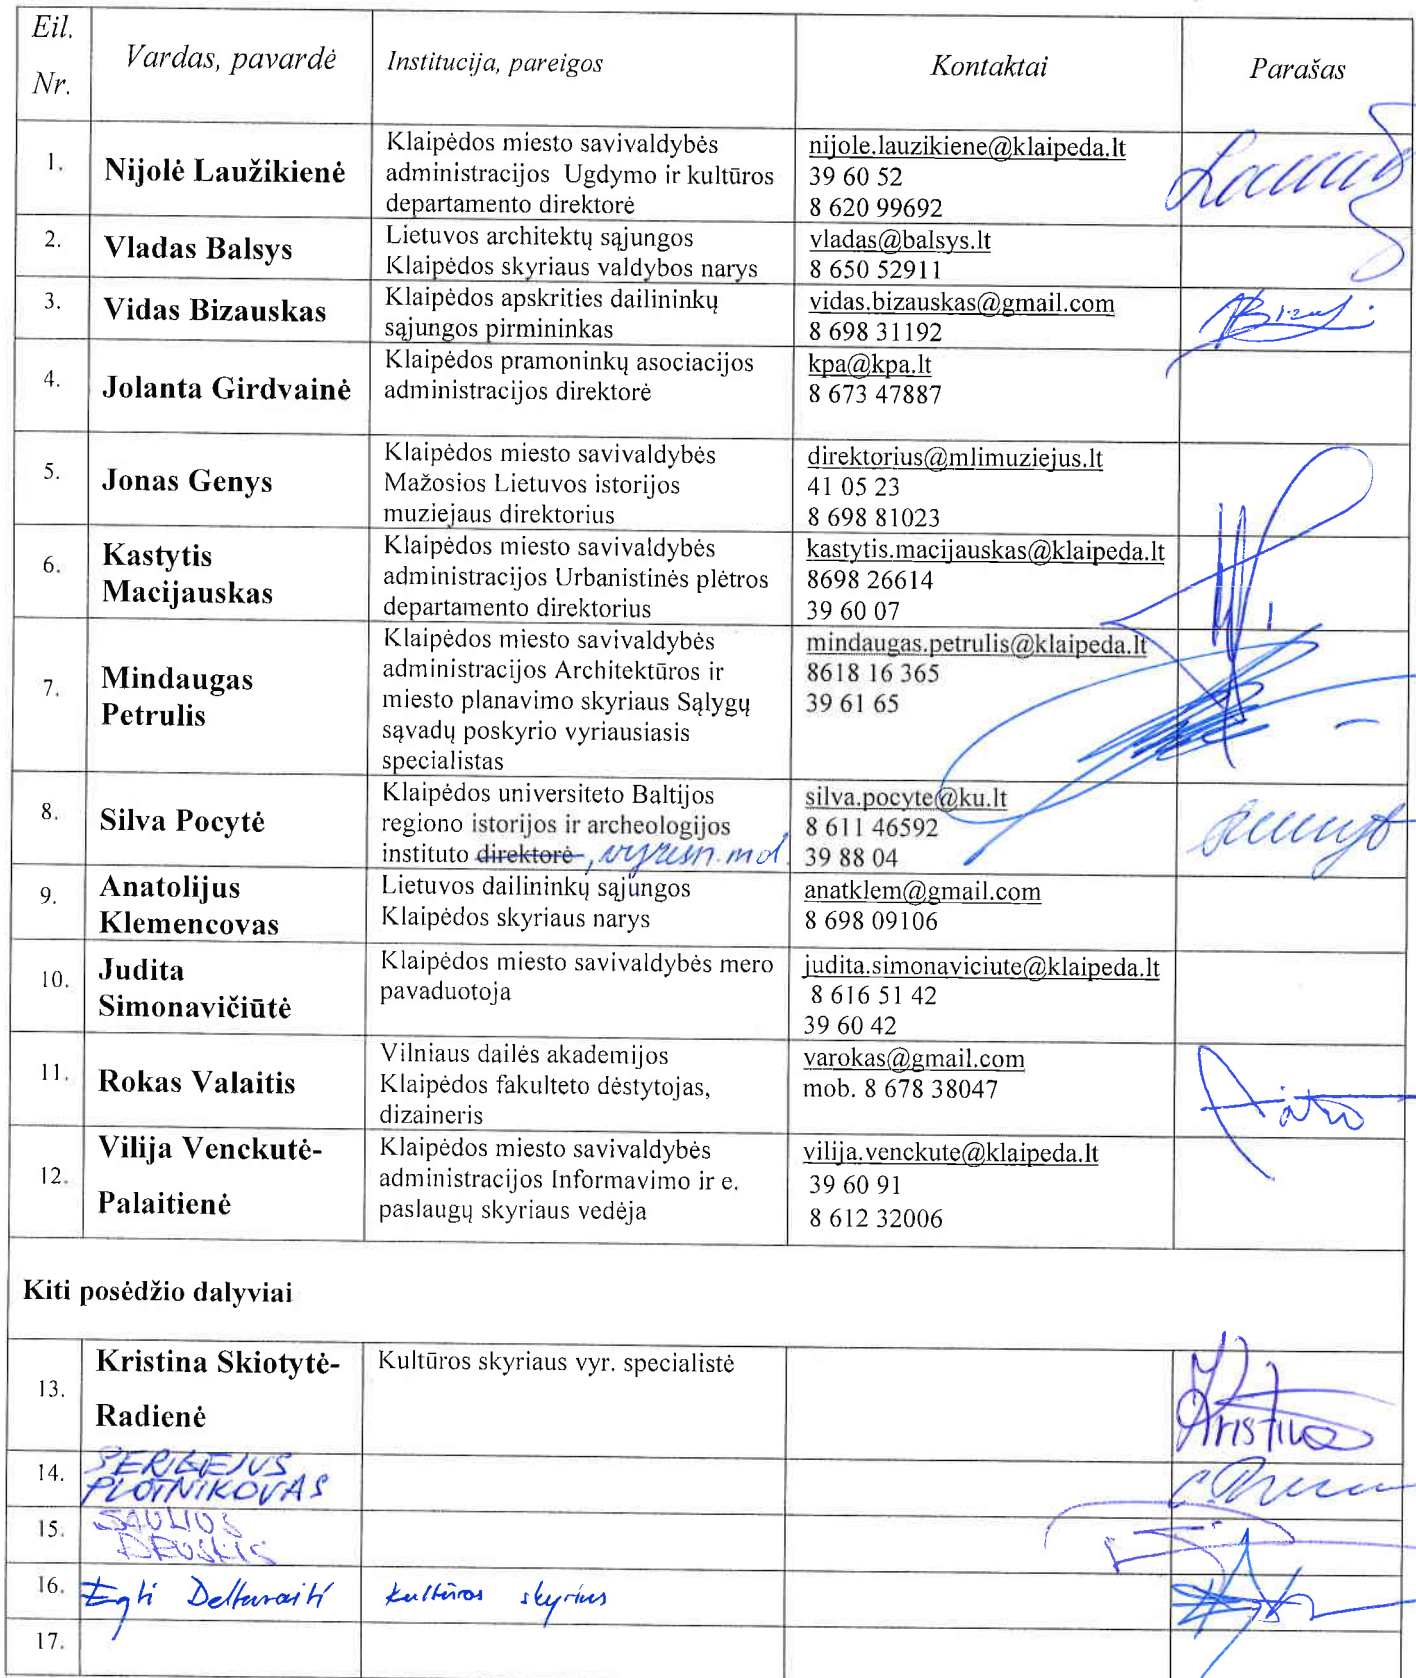 Eil. Nr. Vardas, pavardė Institucija, pareigos Kontaktai Parašas
1. Nijolė Laužikienė
Klaipėdos miesto savivaldybės
administracijos Ugdymo ir kultūros
departamento direktorė
nijole.lauzikiene@klaipeda.lt
39 60 52
8 620 99692
2. Vladas Balsys
Lietuvos architektų sąjungos
Klaipėdos skyriaus valdybos narys
vladas@balsys.lt
8 650 52911
3. Vidas Bizauskas
Klaipėdos apskrities dailininkų
sąjungos pirmininkas
vidas.bizauskas@gmail.com
8 698 31192
4. Jolanta Girdvainė
Klaipėdos pramoninkų asociacijos
administracijos direktorė
kpa@kpa.lt
8 673 47887
5. Jonas Genys
Klaipėdos miesto savivaldybės
Mažosios Lietuvos istorijos
muziejaus direktorius
direktorius@mlimuziejus.lt
41 05 23
8 698 81023
6. Kastytis
Macijauskas
Klaipėdos miesto savivaldybės
administracijos Urbanistinės plėtros
departamento direktorius
kastytis.macijauskas@klaipeda.lt
8698 26614
39 60 07
7. Mindaugas
Petrulis
Klaipėdos miesto savivaldybės
administracijos Architektūros ir
miesto planavimo skyriaus Sąlygų
sąvadų poskyrio vyriausiasis
specialistas
mindaugas.petrulis@klaipeda.lt
8618 16 365
39 61 65
8. Silva Pocytė
Klaipėdos universiteto Baltijos
regiono istorijos ir archeologijos
instituto direktorė, vyresn. md.
silva.pocyte@ku.lt
8 611 46592
39 88 04
9. Anatolijus
Klemencovas
Lietuvos dailininkų sąjungos
Klaipėdos skyriaus narys
anatklem@gmail.com
8 698 09106
10. Judita
Simonavičiūtė
Klaipėdos miesto savivaldybės mero
pavaduotoja
judita.simonaviciute@klaipeda.lt
8 616 51 42
39 60 42
11. Rokas Valaitis
Vilniaus dailės akademijos
Klaipėdos fakulteto dėstytojas,
dizaineris
varokas@gmail.com
mob. 8 678 38047
12. Vilija Venckutė-
Palaitienė
Klaipėdos miesto savivaldybės
administracijos Informavimo ir e.
paslaugų skyriaus vedėja
vilija.venckute@klaipeda.lt
39 60 91
8 612 32006
Kiti posėdžio dalyviai
13. Kristina Skiotytė-
Radienė
Kultūros skyriaus vyr. specialistė
Kristina
14. SERGEJUS
PLOTNIKOVAS
15. SAULIUS
16. Eglė Deltuvaitė
Kultūros skyrius
17.